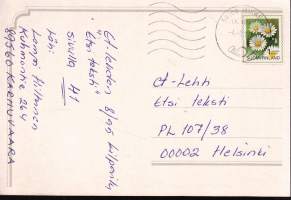 Et-lehden 8/95 kilpailu
"Etsi teksti"
sivulla 41
Läh:
Lampi Hiltunen
Kuhmontie 264
89560 KARHUVAARA
SUOMI FINLAND
et-Lehti
Etsi teksti
PL 107/38
00002 Helsinki